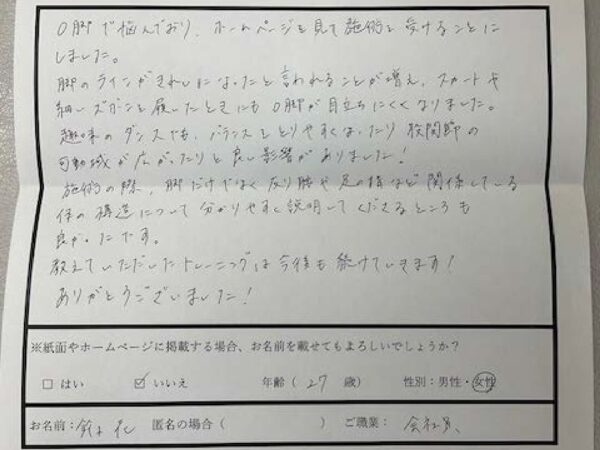 O脚で悩んでおり、ホームページを見て施術を受けることに
しました。
脚のラインがきれいになったと言われることが増え、スカートや
細いズボンを履いたときにもO脚が目立ちにくくなりました。
趣味のダンスでも、バランスをとりやすくなったり股関節の
可動域が広がったりと良い影響がありました！
施術の際、脚だけでなく反り腰や足の指など関係している
体の構造について分かりやすく説明してくださるところも
良かったです。
教えていただいたトレーニングは今後も続けていきます！
ありがとうございました！
※紙面やホームページに掲載する場合、お名前を載せてもよろしいでしょうか？
□ はい ☑ いいえ 年齢（ 27 歳） 性別：男性・女性
お名前： 匿名の場合（ ） ご職業： 会社員